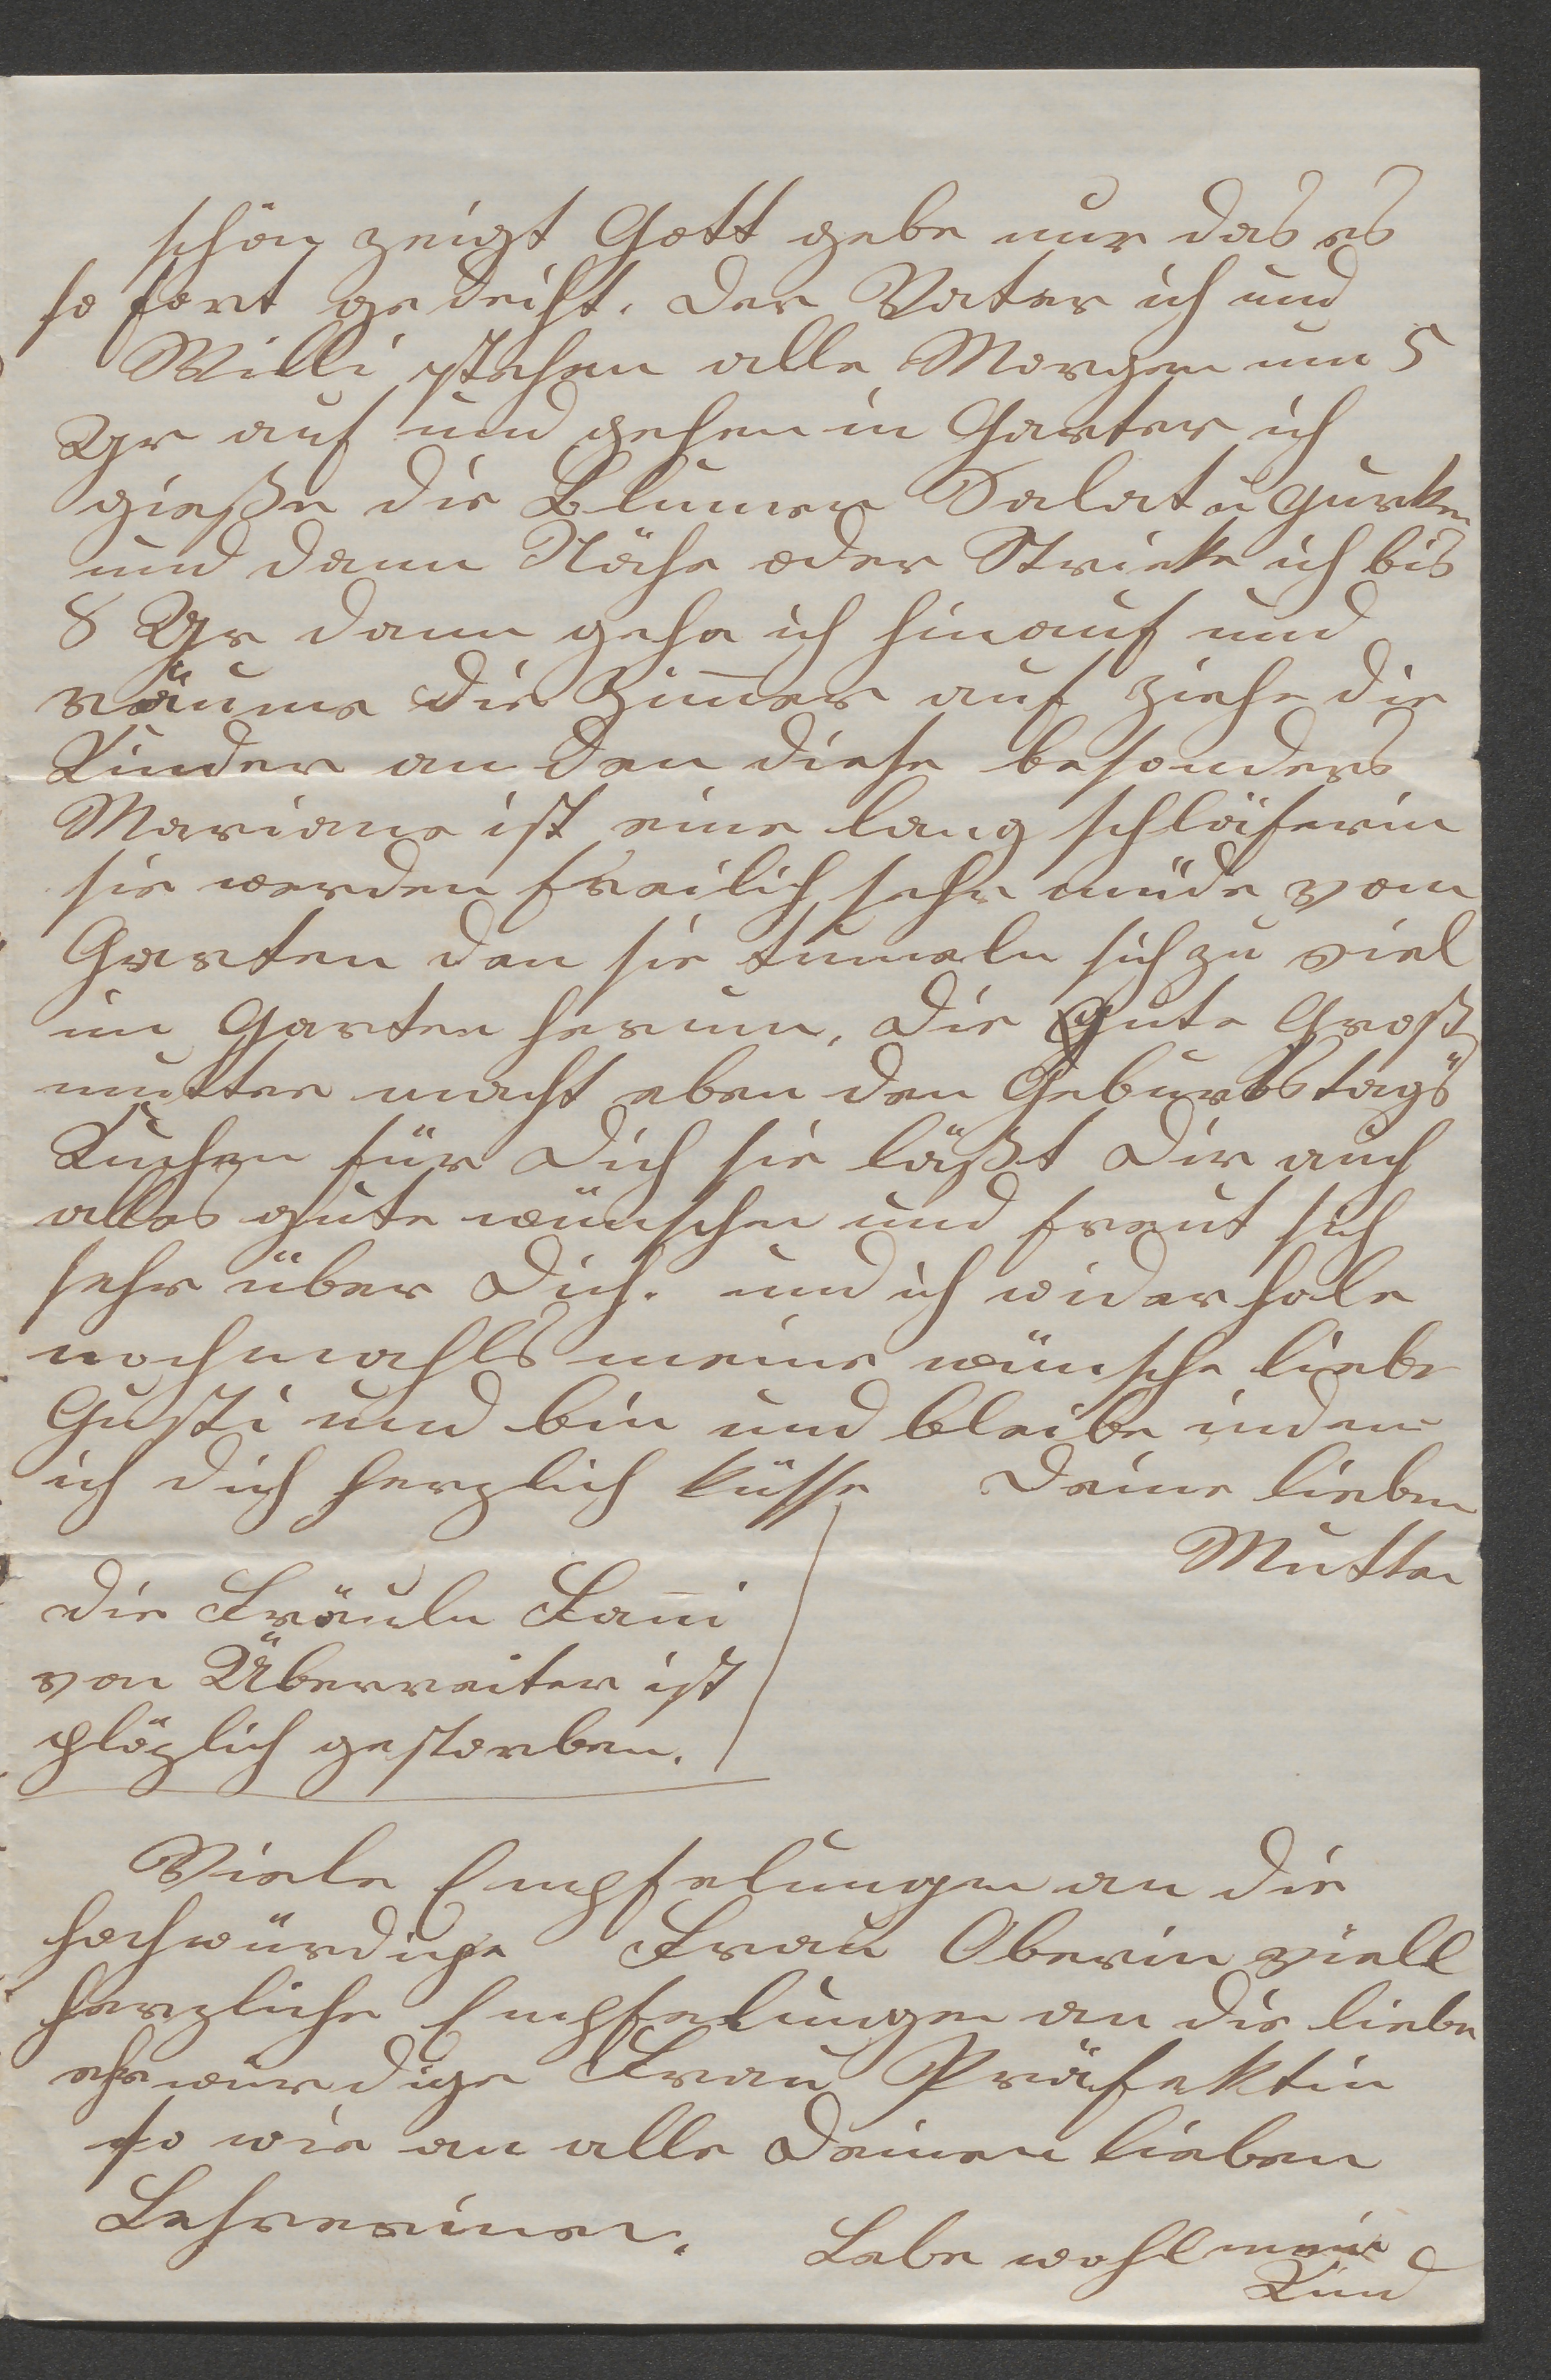 schön zeigt Gott gebe nur das es
so fort gedeiht. Der Vater ich und
Willi stehen alle Morgen um 5
Uhr auf und gehen in Garten ich
gieße die Blumen Salat u Gurken
und dann Nähe oder Stricke ich bis
8 Uhr dann gehe ich hinauf und
räume die Zim̄er auf ziehe die
Kinder an den diese besonders
Mariane ist eine lang schläferin
sie werden freilich sehr müde vom
Garten den sie tumeln sich zu viel
im Garten herum, die Gute Groß
mutter macht eben den Geburtstags"
Kuchen für Dich sie läßt Dir auch
alles gute wünschen und freut sich
sehr über Dich. und ich widerhole
nochmahls meine wünsche liebe
Gusti und bin und bleibe indem
ich dich herzlich küsse Deine lieben
Mutter
Die Fräuln Fan̄i
von Überreiter ist
plözlich gestorben.
Viele Empfelungen an die
hochwürdige Frau Oberin viell
herzliche Empfelungen an die liebe
ehrwürdige Frau Präfektin
so wie an alle Deinen lieben
Lehrerinen.
Lebe wohl mein
Kind